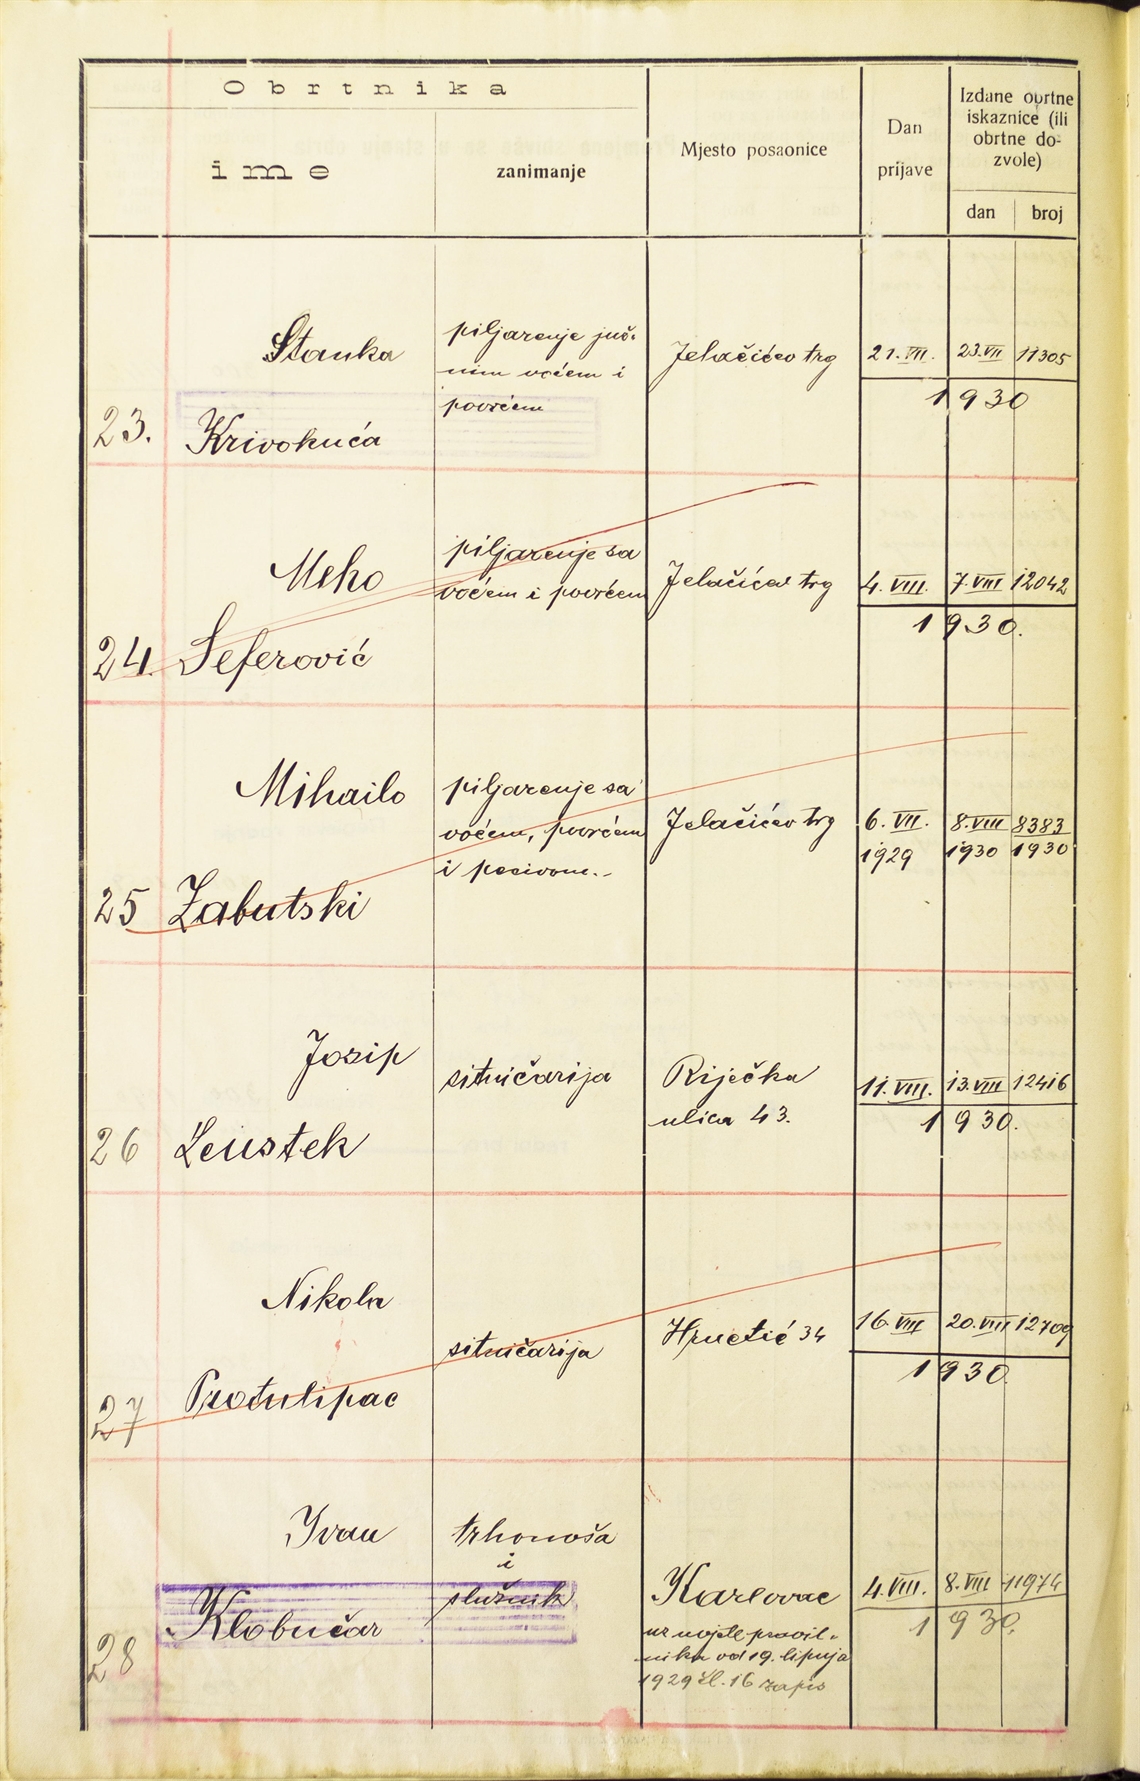 Obrtnika
ime
zanimanje
Mjesto posaonice
Dan
prijave
Izdane obrtne
iskaznice (ili
obrtne do-
zvole)
dan broj
23.
Stanka
Krivokuća
piljarenje juž-
nim voćem i
povrćem
Jelačićev trg
21. VII. 23. VII 11305
1930
24.
Meho
Seferović
piljarenje sa
voćem i povrćem
Jelačićev trg
4. VIII. 7. VIII 12042
1930.
25
Mihailo
Zabutski
piljarenje sa
voćem, povrćem
i pecivom.-
Jelačićev trg
6. VII. 8. VIII 8383
1929 1930 1930
26
Josip
Leustek
sitničarija
Riječka
ulica 43.
11. VIII. 13. VIII 12416
1930.
27
Nikola
Protulipac
sitničarija
Hrnetić 34
16. VIII 20. VIII 12709
1930
28
Ivan
Klobučar
trhonoša
i
služnik
Karlovac
uz uvjete pravil-
nika od 19. lipnja
1929 čl. 16 zapis
4. VIII. 8. VIII 11974
1930.